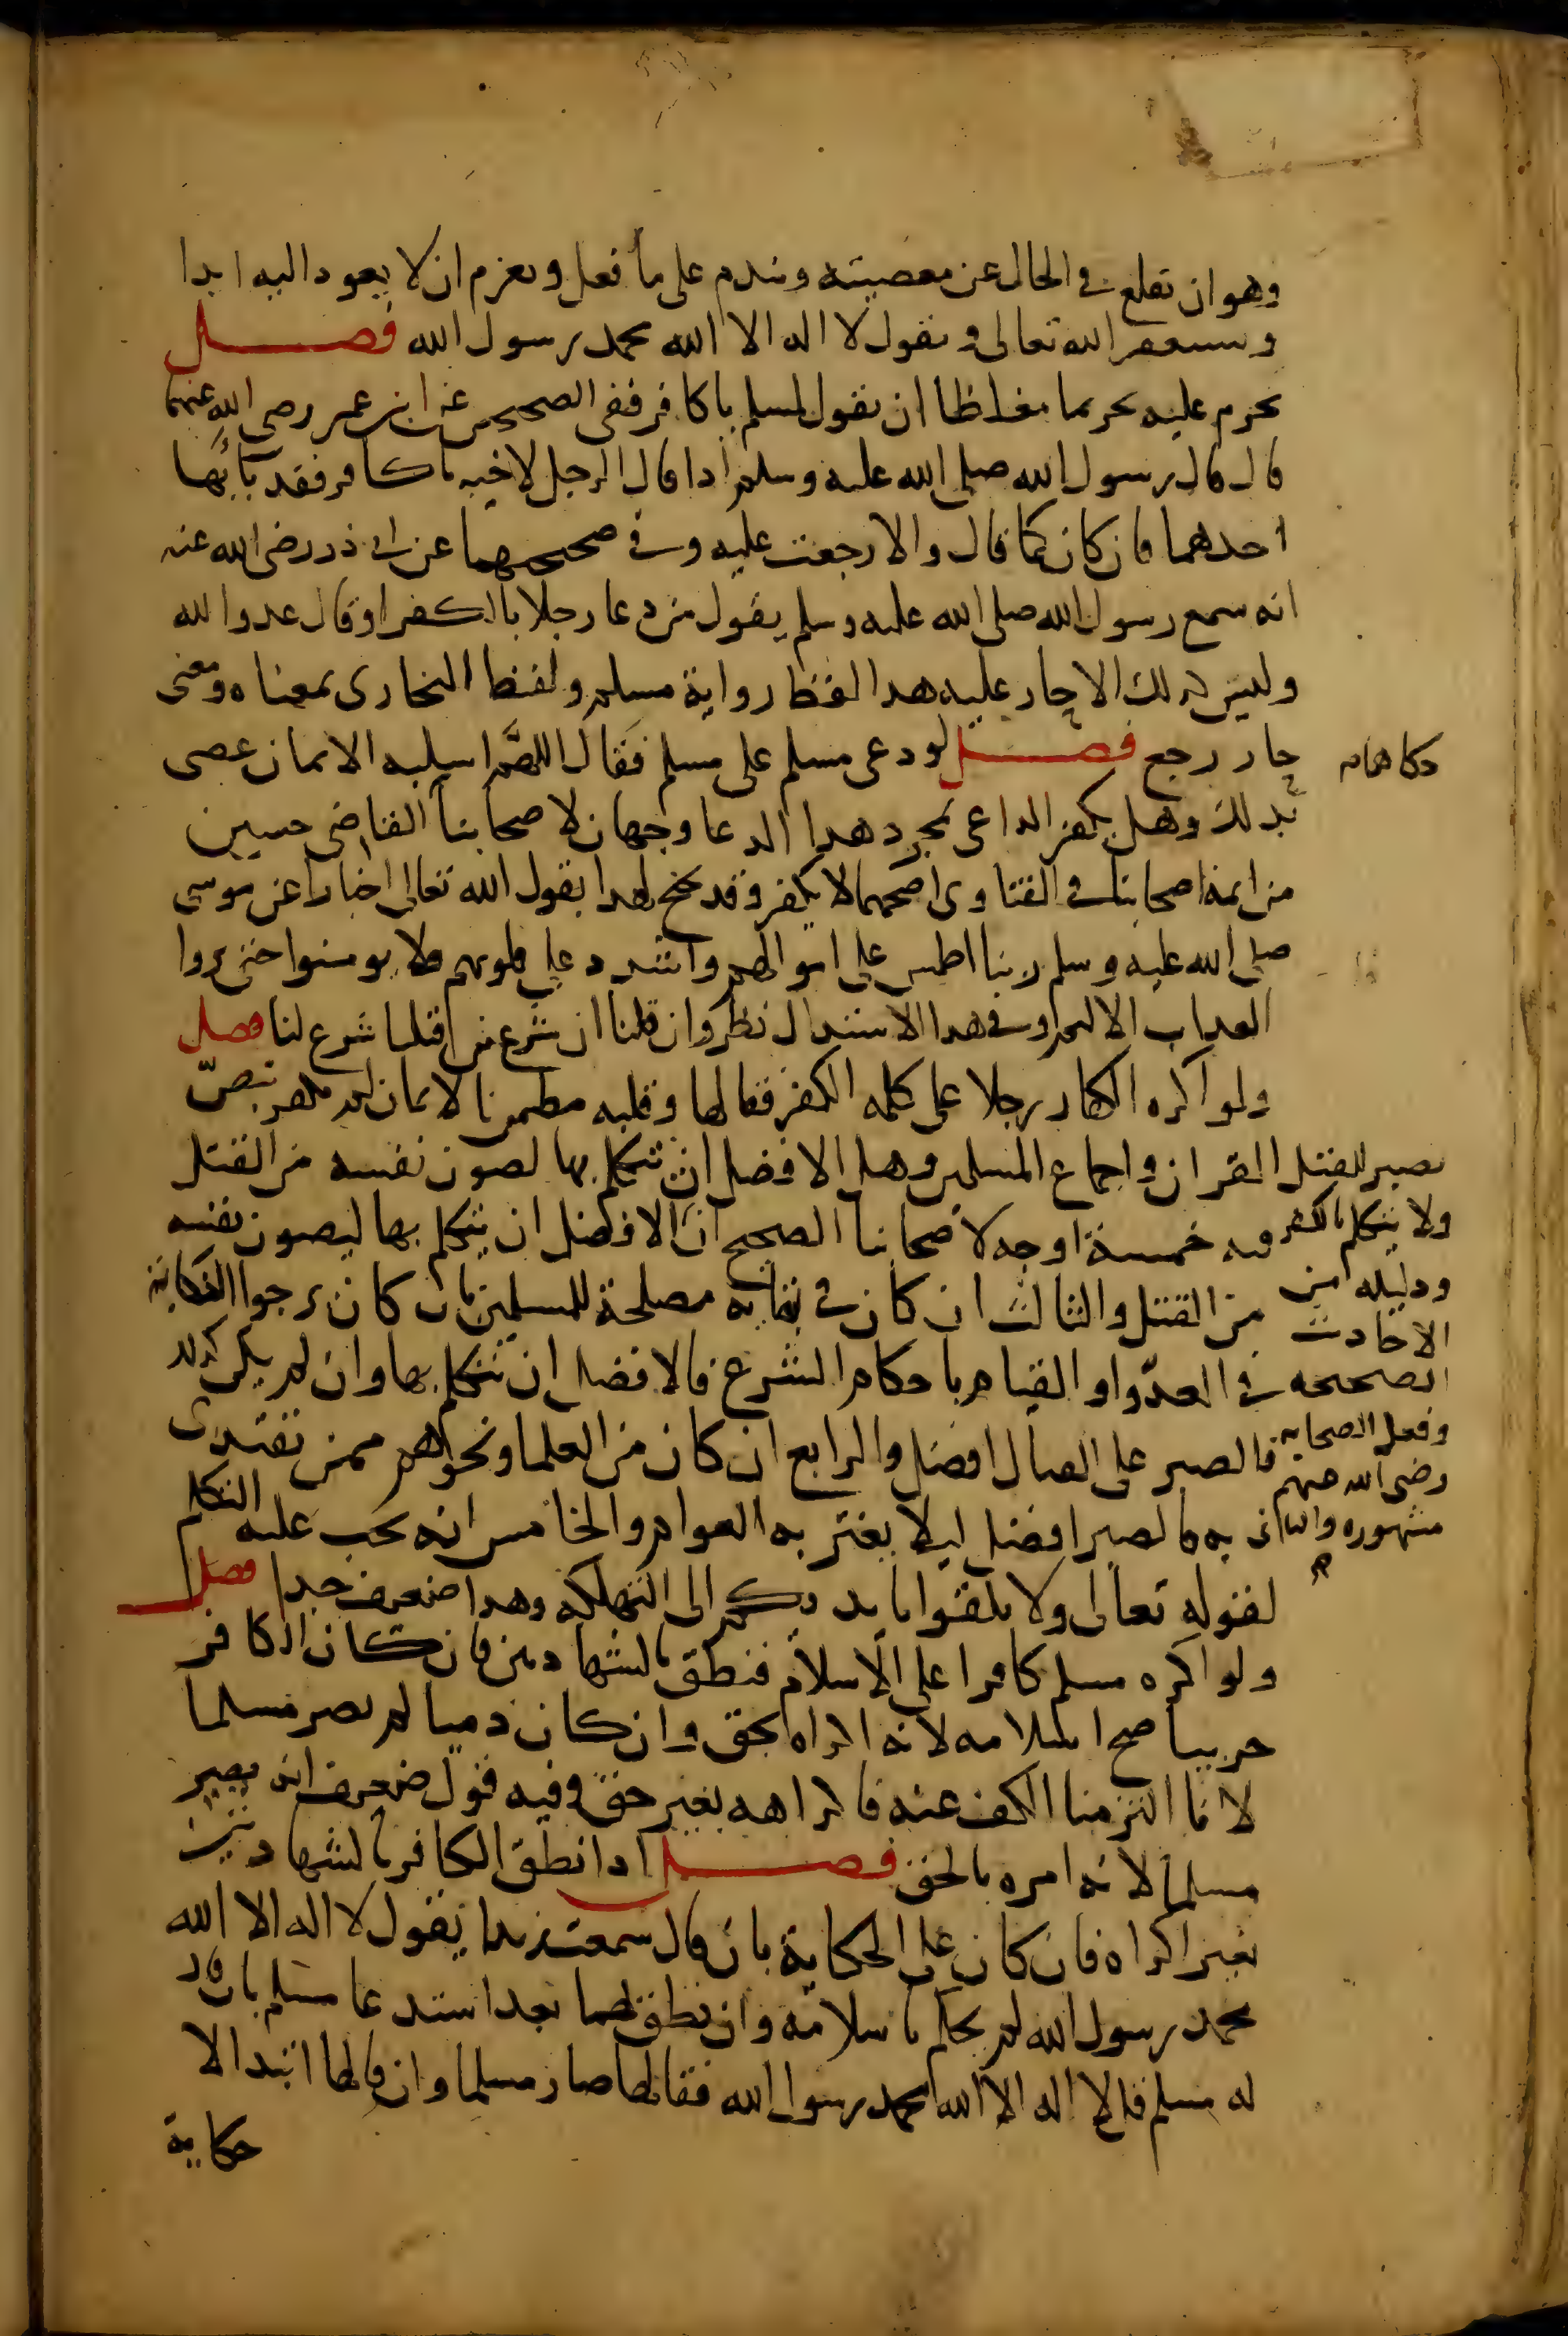 وهو ان يقلع في الحال عن معصيته ويندم على ما فعل ويعزم ان لا يعود اليه ابدا
ويستغفر الله تعالى ويقول لا اله الا الله محمد رسول الله فصل
يحرم عليه تحريما مغلظا ان يقول لمسلم يا كافر ففي الصحيحين عن ابن عمر رضي الله عنهما
قال قال رسول الله صلى الله عليه وسلم اذا قال الرجل لاخيه يا كافر فقد باء بها
احدهما فان كان كما قال والا رجعت عليه وفي صحيحهما عن ابي ذر رضي الله عنه
انه سمع رسول الله صلى الله عليه وسلم يقول من دعا رجلا بالكفر او قال عدو الله
وليس كذلك الا حار عليه هذا لفظ رواية مسلم ولفظ البخاري بمعناه ومعنى
حار رجع فصل لو دعى مسلم على مسلم فقال اللهم اسلبه الايمان عصى
حكاهما
بذلك وهل يكفر الداعي بمجرد هذا الدعا وجهان لاصحابنا القاضي حسين
من ايمة اصحابنا في الفتاوى اصحهما لا يكفر وقد يحتج لهذا بقول الله تعالى اخبارا عن موسى
صلى الله عليه وسلم ربنا اطمس على اموالهم واشدد على قلوبهم فلا يومنوا حتى يروا
العذاب الاليم وفي هذا الاستدلال نظر وان قلنا ان شرع من قبلنا شرع لنا فصل
ولو اكره الكفار رجلا على كلمة الكفر فقالها وقلبه مطمين بالايمان لم يكفر بنص
القران واجماع المسلمين وهل الافضل ان يتكلم بها لصون نفسه من القتل
فيه خمسة اوجه لاصحابنا الصحيح ان الافضل ان
يصبر للقتل
ولا يتكلم بالكفر
ودليله من
الاحاديث
الصحيحه
وفعل الصحابه
رضي الله عنهم
مشهوره والثاني
يتكلم بها ليصون نفسه
من القتل والثالث ان كان في بقايه مصلحة للمسلمين بان كان يرجوا النكاية
في العدو او القيام باحكام الشرع فالافضل ان يتكلم بها وان لم يكن كذلك
فالصبر على القتال افضل والرابع ان كان من العلما ونحوهم ممن يقتدى
به فالصبر افضل ليلا يغتر به العوام والخامس انه يجب عليه التكلم
لقوله تعالى ولا تلقوا بايديكم الى التهلكه وهذا ضعيف جدا فصل
ولو اكره مسلم كافرا على الاسلام فنطق بالشهادتين فان كان الكافر
حربيا صح اسلامه لانه اكراه بحق وان كان ذميا لم يصر مسلما
لانا التزمنا الكف عنه فاكراهه بغير حق وفيه قول ضعيف انه يصير
مسلما لانه امره بالحق فصل اذا نطق الكافر بالشهادتين
بغير اكراه فان كان على الحكاية بان قال سمعت زيدا يقول لا اله الا الله
محمد رسول الله لم يحكم باسلامه وان نطق بهما بعد استدعا مسلم بان قال
له مسلم قل لا اله الا الله محمد رسول الله فقالها صار مسلما وان قالها ابتدا لا
حكاية